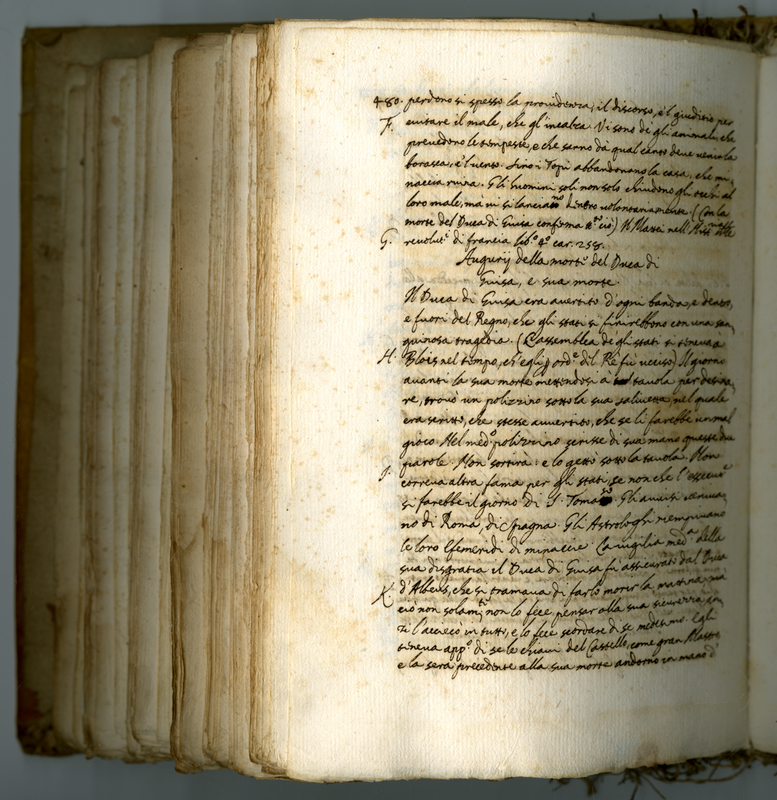 480. perdono si spesso la providenza, il discorso, e'l giuditio per
F. euitare il male, che gl'incalza. Vi sono de gli animali, che
preuedono le tempeste, e che sanno da qual canto deue venir la
borasca, e'l uento. Sino i Topi abbandonano la casa, che mi,
naccia ruina. Gli huomini soli non solo chiudono gli occhi al
loro male, ma ui si lanciano dentro volontariamente. (Con la
morte del Duca di Guisa conferma ciò) Il Mattei nell'
G. reuolut.i di francia lib.o 4.o car. 258.
Augurij della morte del Duca di
Guisa, e sua morte.
Il Duca di Guisa era auertito d'ogni banda, e dentro,
e fuori del Regno, che gli stati si finirebbono con una san,
guinosa tragedia. (L'assemblea de gli stati si teneua à
H. Blois nel tempo, ch'egli p ord.e del Rè fù ucciso) Il giorno
auanti la sua morte mettendosi à tauola per desina,
re, trouò un polizzino sotto la sua saluietta, nel quale
era scritto, che stesse auuertito, che se li farebbe un mal
gioco. Nel med.o polizzino scrisse di sua mano queste due
I. parole. Non sortirà: e lo gettò sotto la tauola. Non
correua altra fama per gli stati, se non che l'essecut.e
si farebbe il giorno di S. Tomaso. Gli auuisi ueniua,
no di Roma, di Spagna. Gli Astrologhi riempiuano
le loro Efemeridi di minaccie. La uigilia med.a della
sua disgratia il Duca di Guisa fù assicurato dal Duca
K. d'Albeus, che si tramaua di farlo morir la matina, ma
ciò non solam.te non lo fece pensar alla sua sicurezza, an,
zi l'acciecò in tutto, e lo fece scordare di se medesimo. Egli
teneua app.o di se le chiaui del Castello, come gran Mastro
e la sera precedente alla sua morte andorno in mano d'